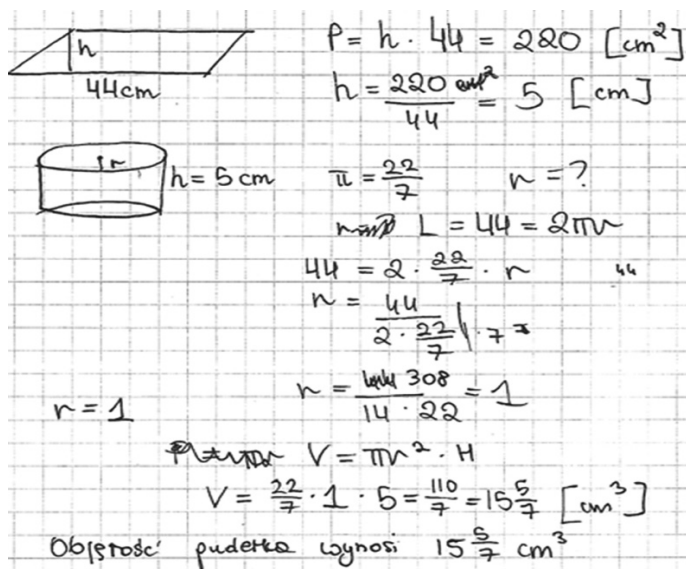 h
44cm
P = h · 44 = 220 [cm²]
h = 220 / 44 = 5 [cm]
r
h = 5 cm
π = 22/7 r = ?
L = 44 = 2πr
44 = 2 · 22/7 · r 44
r = 44 / (2 · 22/7) | · 7
r = 308 / (14 · 22) = 1
r = 1
V = πr² · H
V = 22/7 · 1 · 5 = 110/7 = 15 5/7 [cm³]
Objętość pudełka wynosi 15 5/7 cm³